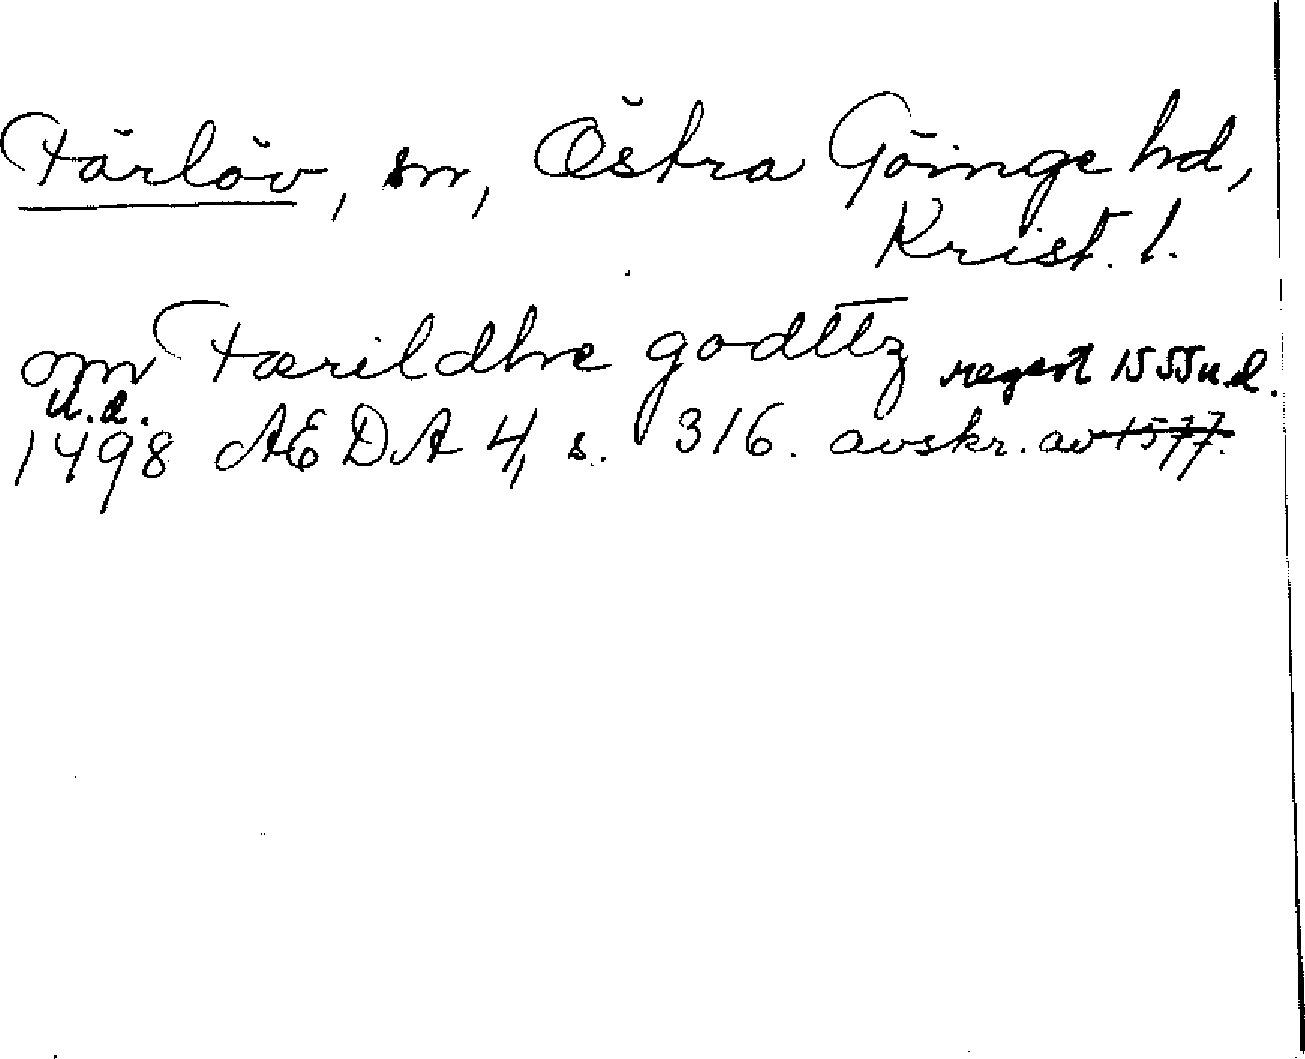 Färlöv, sn, Östra Göinge hd,
Krist. l.
om Færildhæ godttz regest 1555 u.d.
u.d.
1498 AEDA 4, s. 316. avskr. av 1577.